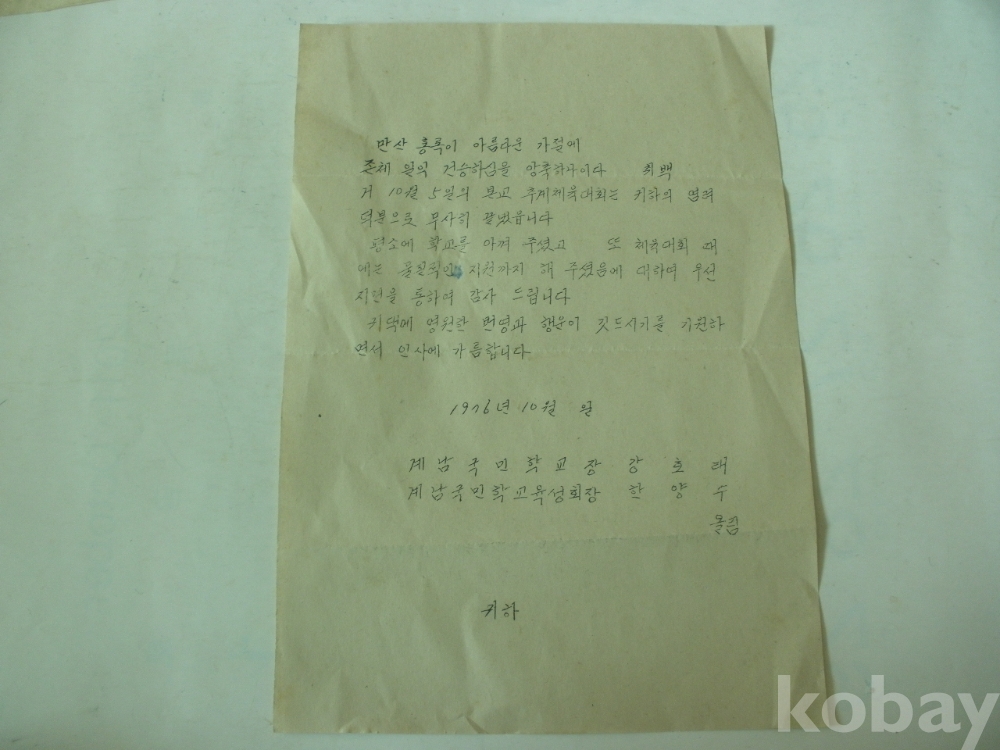 만산 홍록이 아름다운 가절에
존체 일익 건승하심을 앙축하나이다 취백
거 10월 5일의 본교 추계체육대회는 귀하의 염려
덕분으로 무사히 끝냈읍니다
평소에 학교를 아껴 주셨고 또 체육대회 때
에는 물질적인 지원까지 해 주셨음에 대하여 우선
지면을 통하여 감사 드립니다
귀댁에 영원한 번영과 행운이 깃드시기를 기원하
면서 인사에 가름합니다
1976년 10월 일
계남국민학교장 강호태
계남국민학교육성회장 한양수
올림
귀하
kobay